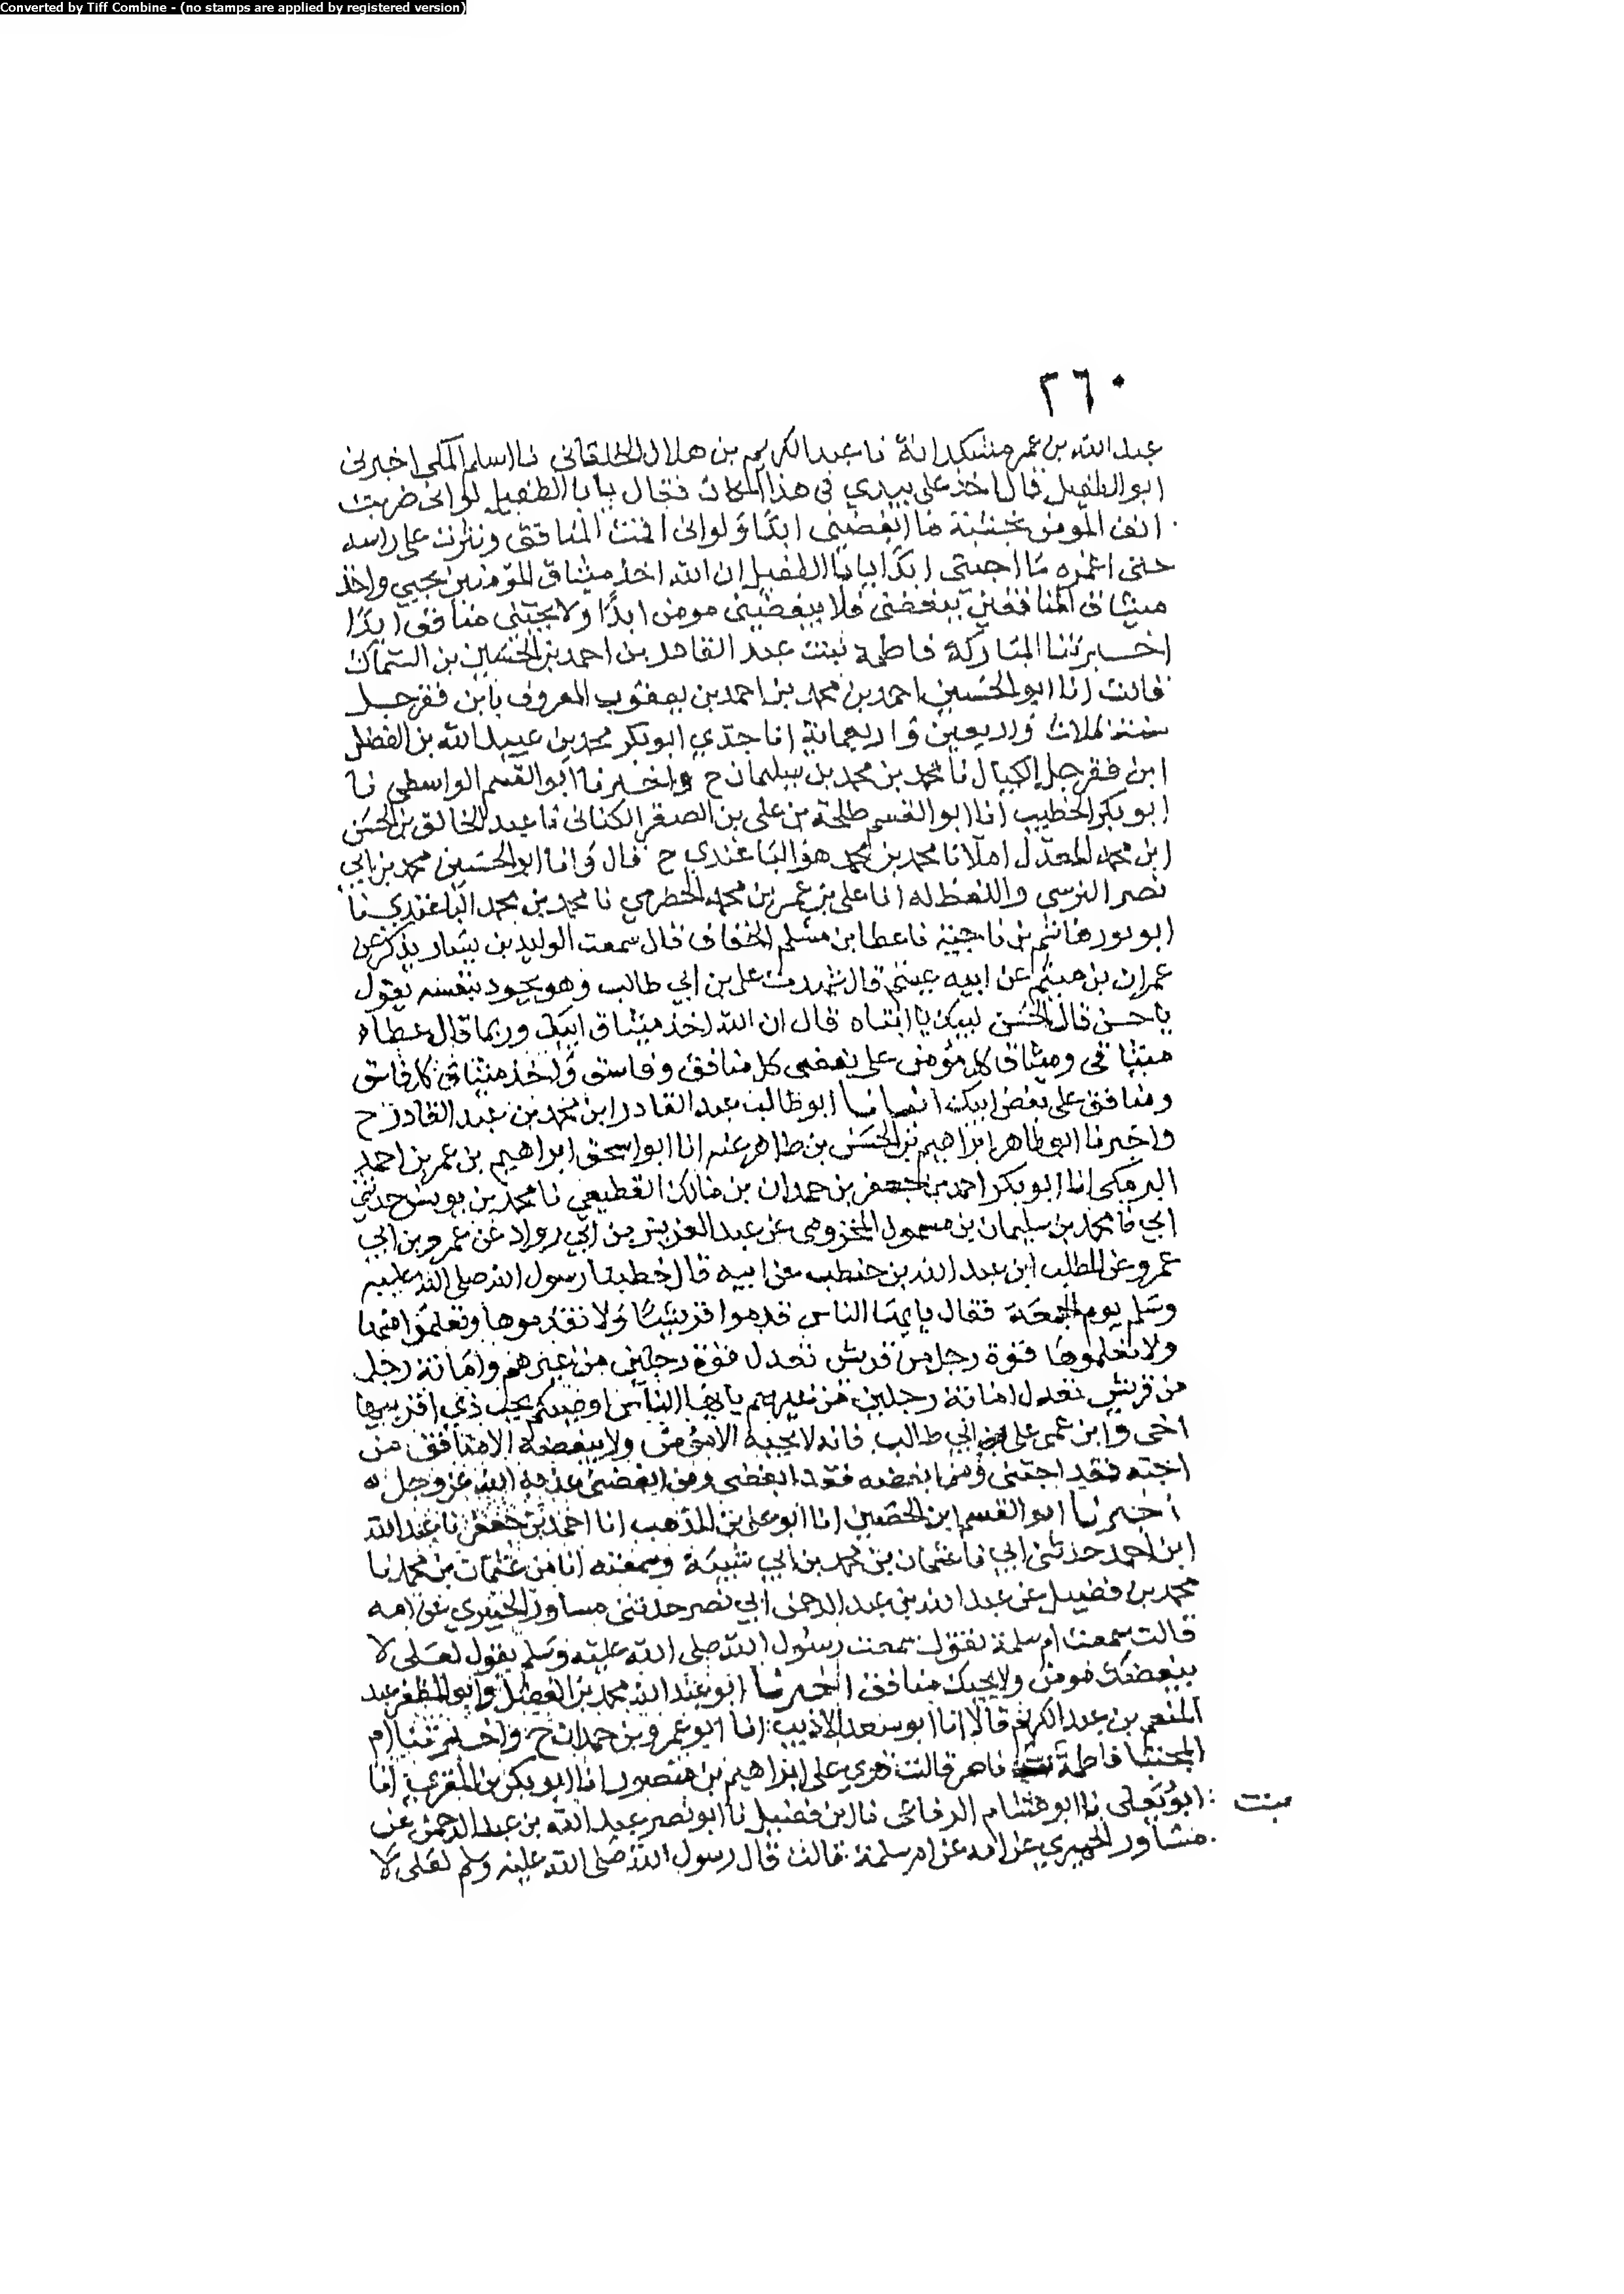 Converted by Tiff Combine - (no stamps are applied by registered version)
٢٦٠
عبد الله بن عمر مشكدانة نا عبد الكريم بن هلال الخلقانى نا اسلم المكى اخبرنى
ابو الطفيل قال اخذ على بيدي فى هذا المكان فقال يا با الطفيل لو انى ضربت
انف المومن بخشبة ما ابغضنى ابدًا ولو انى اقمت المنافق ونثرت على راسه
حتى اغمره ما احبنى ابدًا يا با الطفيل ان الله اخذ ميثاق المؤمنين بحبي واخذ
ميثاق المنافقين ببغضى فلا يبغضنى مومن ابدًا ولا يحبنى منافق ابدًا
اخبرتنا المباركة فاطمة بنت عبد القادر بن احمد بن الحسين بن السماك
قالت انا ابو الحسين احمد بن محمد بن احمد بن يعقوب المعروف بابن قفرجل
سنة ثلاث واربعين واربعمائة انا جدّي ابو بكر محمد بن عبيد الله بن الفضل
ابن قفرجل الكيال نا محمد بن محمد بن سليمان ح واخبرنا ابو القسم الواسطى نا
ابو بكر الخطيب انا ابو القسم طلحة بن على بن الصقر الكنانى نا عبد الخالق بن الحسن
ابن محمد المعدّل املا نا محمد بن محمد هو الباغندي ح قال وانا ابو الحسين محمد بن ابي
نصر النرسى واللفظ له انا على بن عمر بن محمد الحضرمي نا محمد بن محمد الباغندي نا
ابو نور هاشم بن ناجية نا عطا بن مسلم الخفاف قال سمعت الوليد بن يسار يذكر عن
عمران بن ميثم عن ابيه ميثم قال شهدت على بن ابي طالب وهو يجود بنفسه يقول
يا حسن قال الحسن لبيك يا ابتاه قال ان الله اخذ ميثاق ابيك وربما قال عطاء
ميثاقى وميثاق كل مؤمن على بغض كل منافق وفاسق واخذ ميثاق كل فاسق
ومنافق على بغض ابيك انبانا ابو طالب عبد القادر ابن محمد بن عبد القادر ح
واخبرنا ابو طاهر ابراهيم بن الحسن بن طاهر عنه انا ابو اسحق ابراهيم بن عمر بن احمد
البرمكى انا ابو بكر احمد بن جعفر بن حمدان بن مالك القطيعي نا محمد بن يونس حدثني
ابي نا محمد بن سليمان بن مسمول المخزومى عن عبد العزيز بن ابي رواد عن عمرو بن ابي
عمرو عن المطلب ابن عبد الله بن حنطب عن ابيه قال خطبنا رسول الله صلى الله عليه
وسلم يوم الجمعة فقال يا يها الناس قدموا قريشًا ولا تقدموها وتعلموا منها
ولا تعلموها قوة رجل من قريش تعدل قوة رجلين من غيرهم وامانة رجل
من قريش تعدل امانة رجلين من غيرهم يا يها الناس اوصيكم بحب ذي اقربيها
اخى وابن عمى على بن ابي طالب فانه لا يحبه الا مؤمن ولا يبغضه الا منافق من
احبه فقد احبنى ومن ابغضه فقد ابغضنى ومن ابغضنى عذبه الله عز وجل
اخبرنا ابو القسم ابن الحصين انا ابو على بن المذهب انا احمد بن جعفر نا عبد الله
ابن احمد حدثنى ابي نا عثمان بن محمد بن ابي شيبة وسمعته انا من عثمان بن محمد نا
محمد بن فضيل عن عبد الله بن عبد الرحمن ابي نصر حدثنى مساور الحميري عن امه
قالت سمعت ام سلمة تقول سمعت رسول الله صلى الله عليه وسلم يقول لعلى لا
يبغضك مومن ولا يحبك منافق اخبرنا ابو عبد الله محمد بن الفضل وابو المظفر عبد
المنعم بن عبد الكريم قالا انا ابو سعد الاديب انا ابو عمرو بن حمدان ح واخبرتنا ام
المجتبا فاطمة بنت ناصر قالت قري على ابراهيم بن منصور انا ابو بكر بن المقري انا
بنت
ابو يعلى نا ابو هشام الرفاعى نا ابن فضيل نا ابو نصر عبد الله بن عبد الرحمن عن
مساور الحميري عن امه عن ام سلمة قالت قال رسول الله صلى الله عليه وسلم لعلى لا